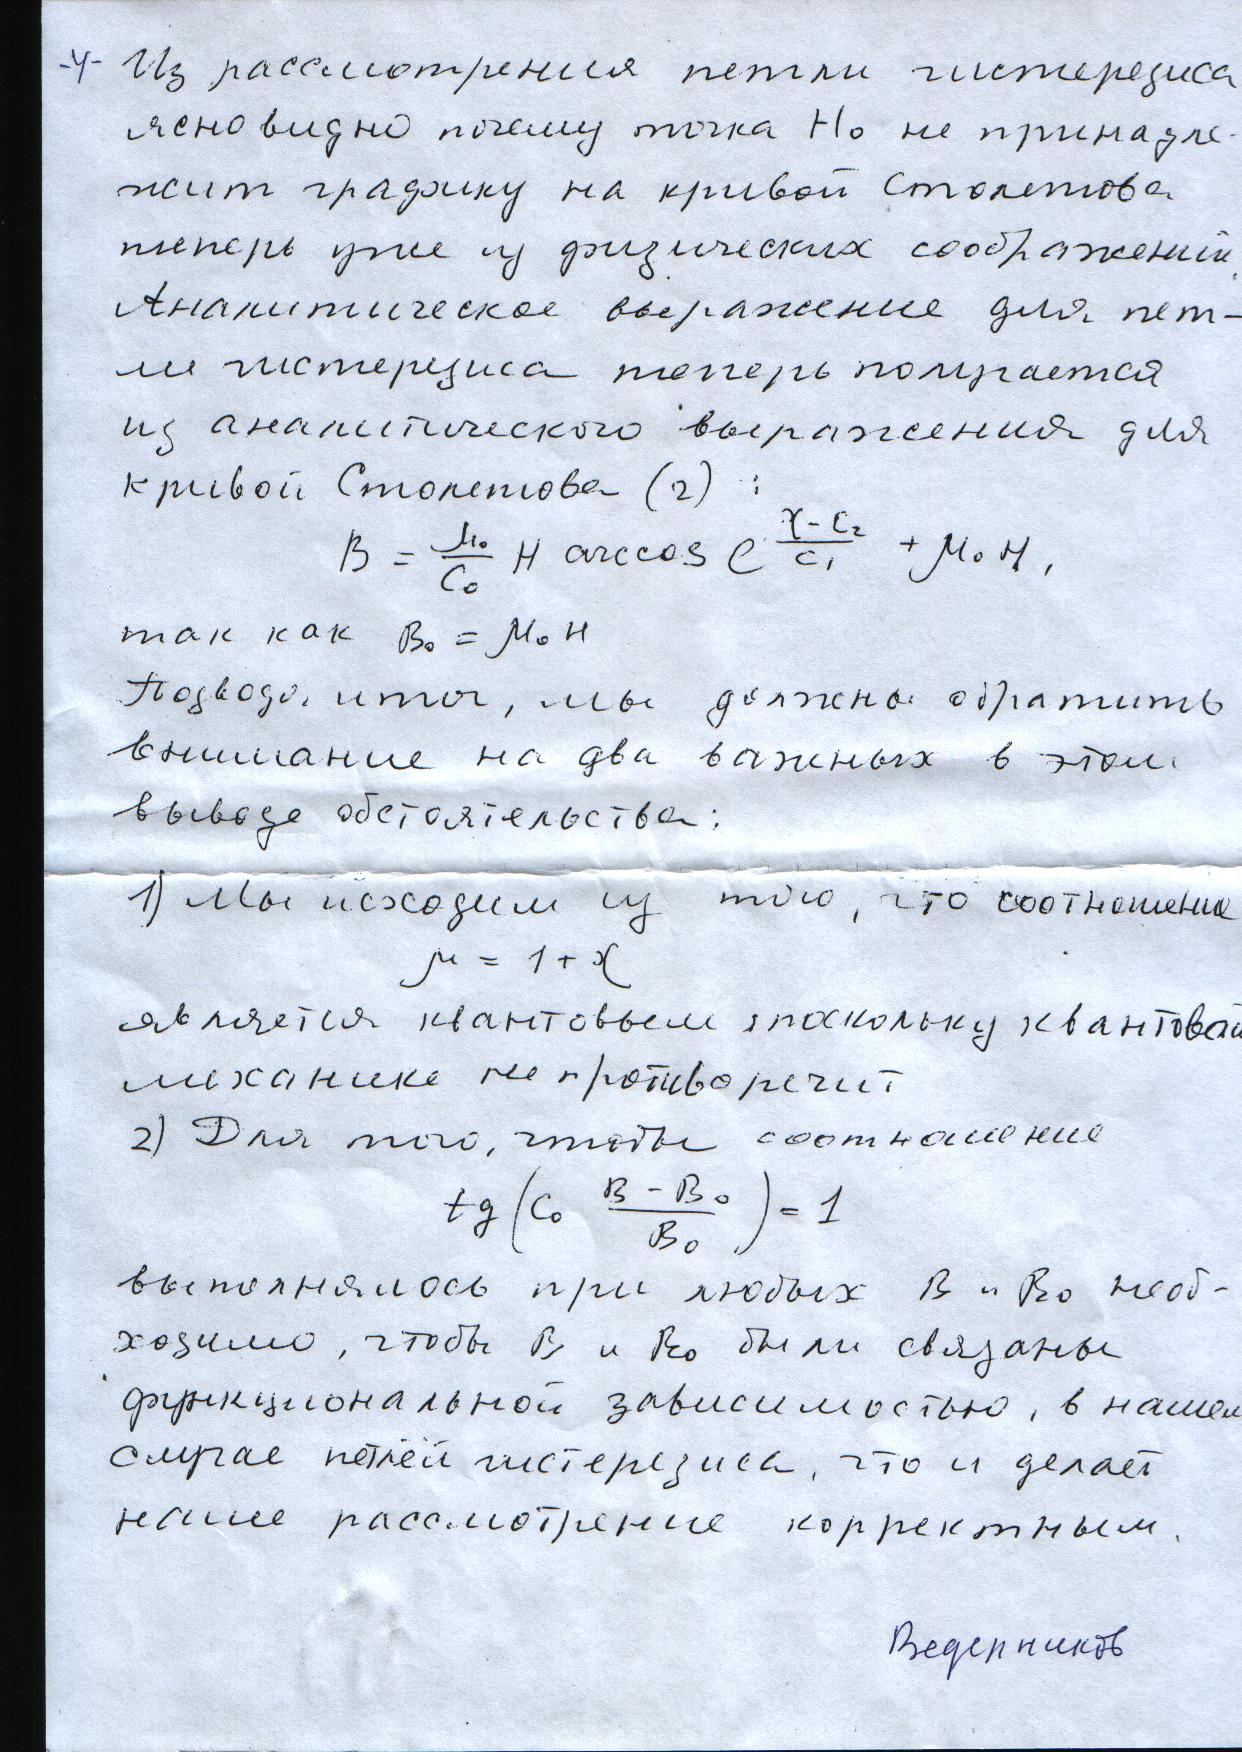 -4- Из рассмотрения петли гистерезиса
ясно видно почему точка H₀ не принадле-
жит графику на кривой Столетова
теперь уже из физических соображений.
Аналитическое выражение для пет-
ли гистерезиса теперь получается
из аналитического выражения для
кривой Столетова (2) :
B = μ₀/C₀ H arccos e^((χ - C₂)/C₁) + μ₀ H ,
так как B₀ = μ₀ H
Подводя итог, мы должны обратить
внимание на два важных в этом
выводе обстоятельства :
1) Мы исходим из того, что соотношение
μ = 1 + χ
является квантовым , поскольку квантовой
механике не противоречит
2) Для того, чтобы соотношение
tg (C₀ (B - B₀)/B₀) = 1
выполнялось при любых B и B₀ необ-
ходимо, чтобы B и B₀ были связаны
функциональной зависимостью, в нашем
случае петлёй гистерезиса, что и делает
наше рассмотрение корректным.
Ведерников